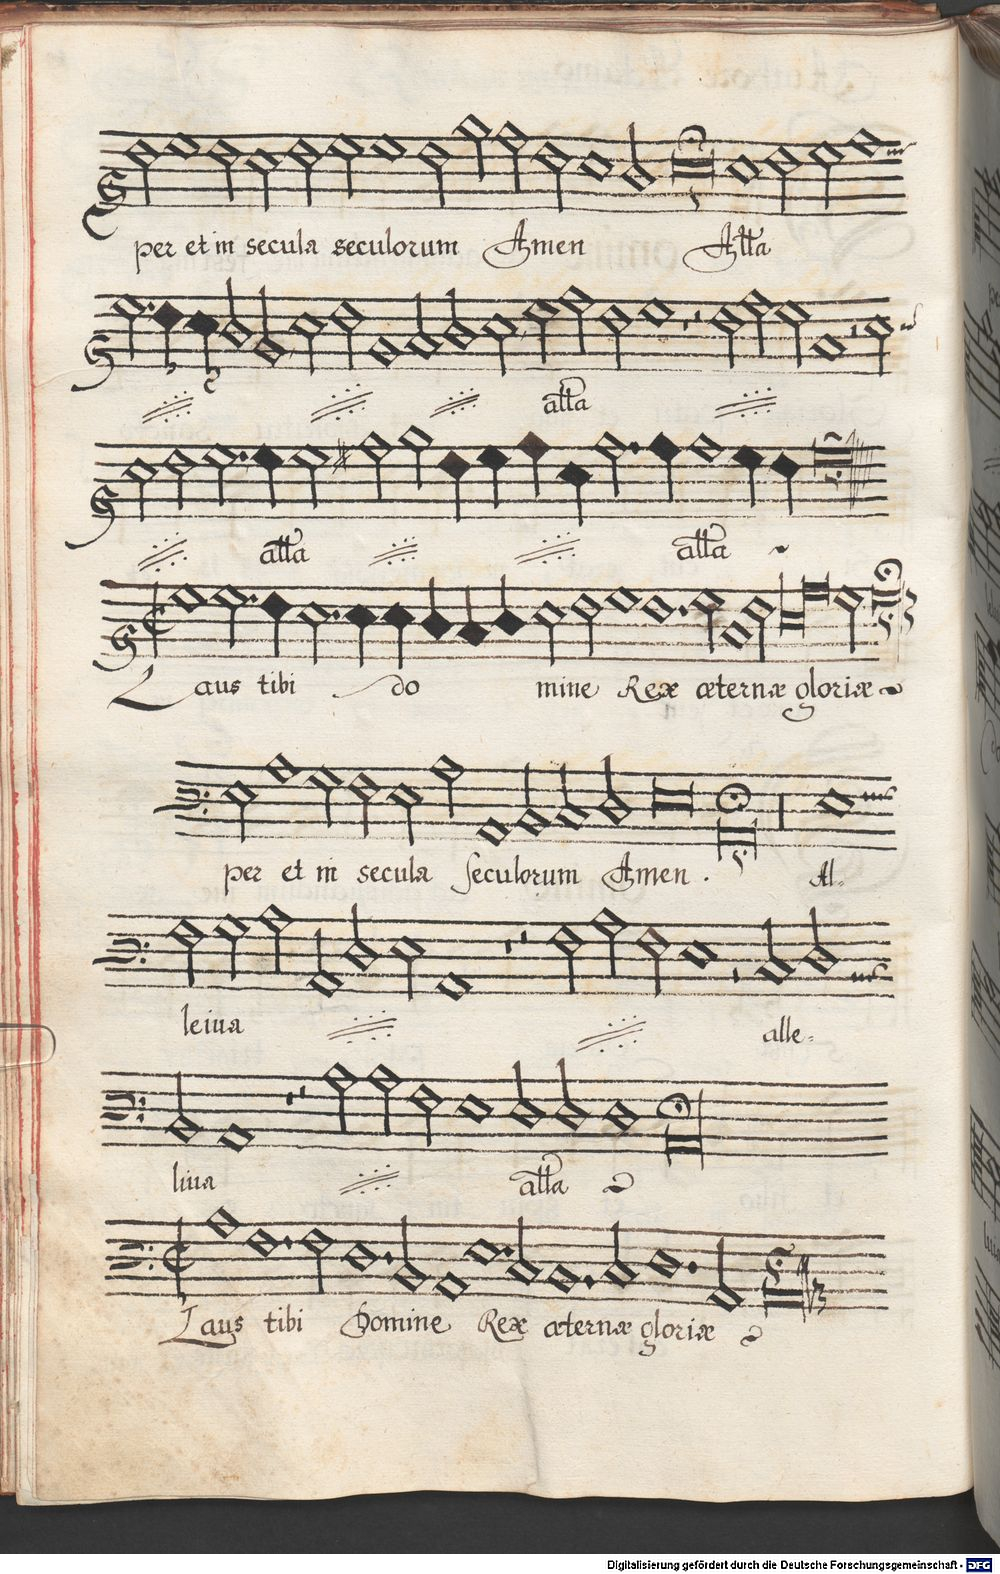 per et in secula seculorum Amen Alla
alla
alla alla
Laus tibi do mine Rex æternæ gloriæ
per et in secula seculorum Amen. Al-
leiua alle=
liua alla
Laus tibi Domine Rex æternæ gloriæ
Digitalisierung gefördert durch die Deutsche Forschungsgemeinschaft - DFG